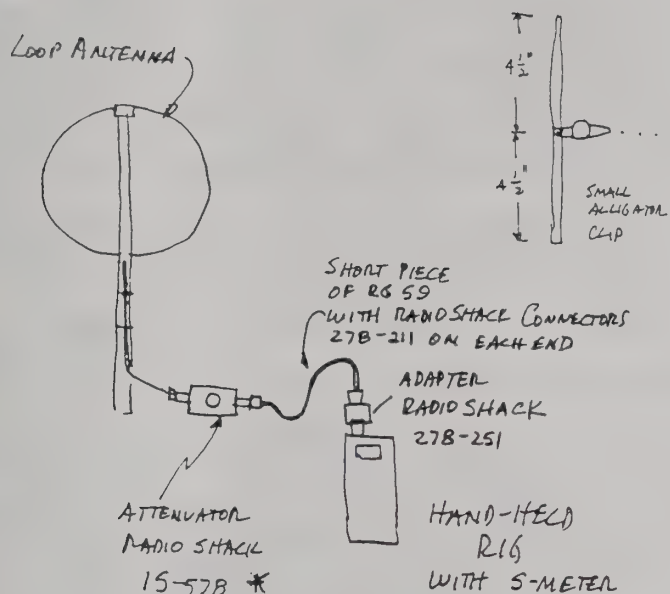 LOOP ANTENNA
4 1/2"
4 1/2"
SMALL
ALLIGATOR
CLIP
SHORT PIECE
OF RG 59
WITH RADIO SHACK CONNECTORS
278-211 ON EACH END
ADAPTER
RADIO SHACK
278-251
ATTENUATOR
RADIO SHACK
15-578 *
HAND-HELD
RIG
WITH S-METER